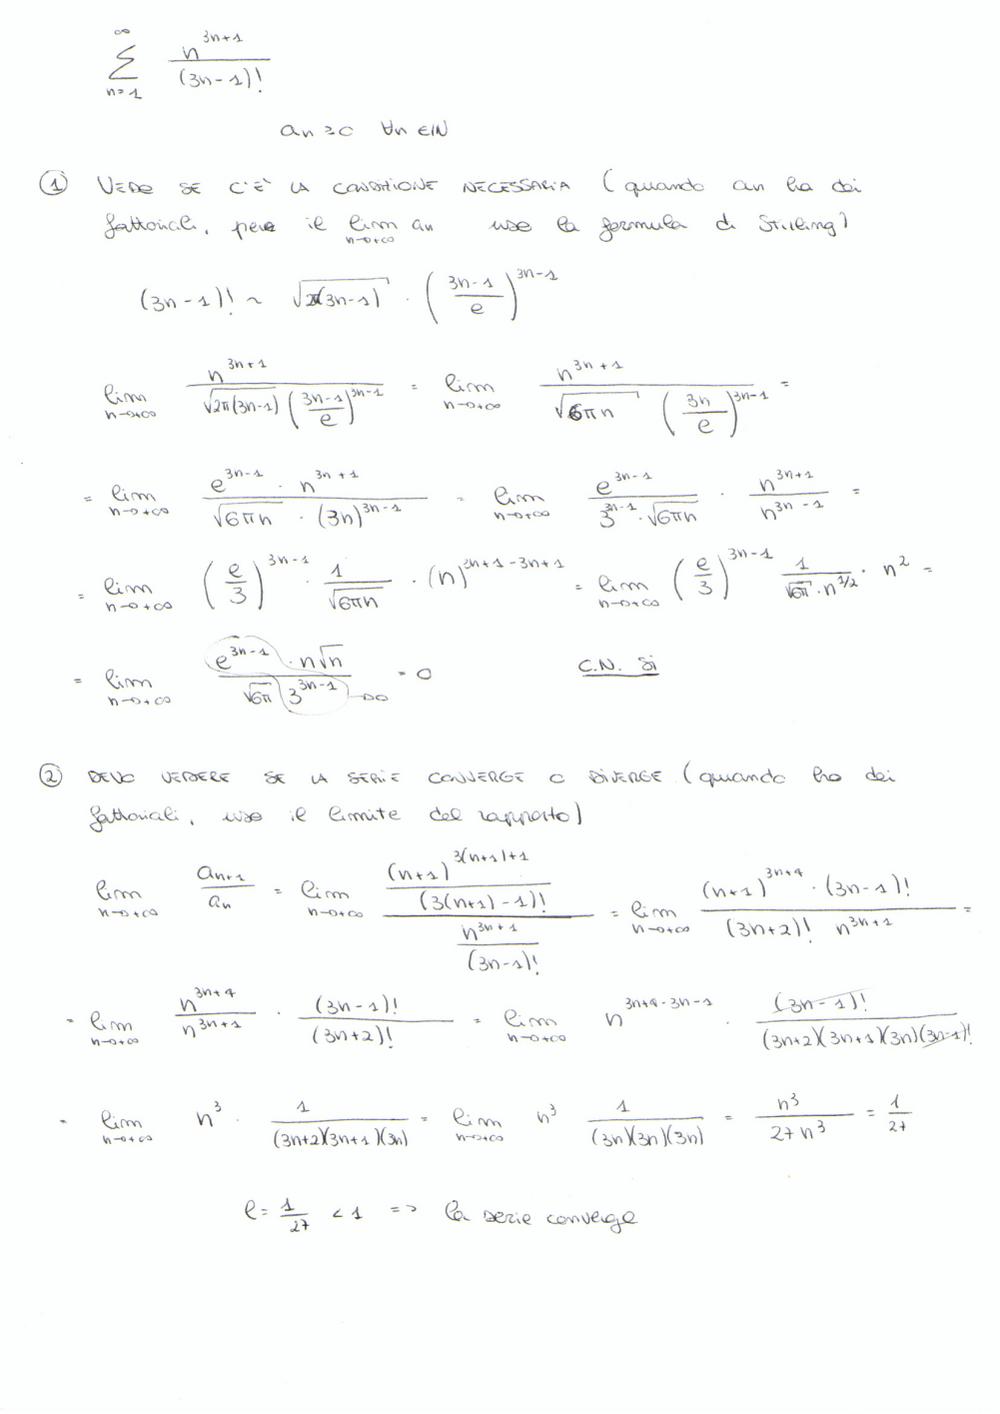 ∞ n^{3n+1}
∑ ―――
n=1 (3n-1)!
an ≥ 0 ∀n ∈ IN
① VEDO SE C'È LA CONDIZIONE NECESSARIA (quando an ha dei
fattoriali, per il lim_{n→+∞} an uso la formula di Stirling)
(3n-1)! ~ √(2π(3n-1)) · ((3n-1)/e)^{3n-1}
lim_{n→+∞} n^{3n+1} / (√(2π(3n-1)) ((3n-1)/e)^{3n-1}) = lim_{n→+∞} n^{3n+1} / (√(6πn) (3n/e)^{3n-1}) =
= lim_{n→+∞} (e^{3n-1} · n^{3n+1}) / (√(6πn) · (3n)^{3n-1}) = lim_{n→+∞} e^{3n-1} / (3^{3n-1} · √(6πn)) · n^{3n+1} / n^{3n-1} =
= lim_{n→+∞} (e/3)^{3n-1} · 1/√(6πn) · (n)^{3n+1-3n+1} = lim_{n→+∞} (e/3)^{3n-1} 1/(√(6π) · n^{1/2}) · n^2 =
= lim_{n→+∞} (e^{3n-1} · n√n) / (√(6π) 3^{3n-1}) → 0 = 0 C.N. Si
② DEVO VEDERE SE LA SERIE CONVERGE O DIVERGE (quando ho dei
fattoriali, uso il limite del rapporto)
lim_{n→+∞} a_{n+1}/a_n = lim_{n→+∞} ((n+1)^{3(n+1)+1} / (3(n+1)-1)!) / (n^{3n+1} / (3n-1)!) = lim_{n→+∞} ((n+1)^{3n+4} · (3n-1)!) / ((3n+2)! n^{3n+1}) =
= lim_{n→+∞} n^{3n+4}/n^{3n+1} · (3n-1)!/(3n+2)! = lim_{n→+∞} n^{3n+4-3n-1} · (3n-1)! / ((3n+2)(3n+1)(3n)(3n-1)!)
= lim_{n→+∞} n^3 · 1/((3n+2)(3n+1)(3n)) = lim_{n→+∞} n^3 1/((3n)(3n)(3n)) = n^3/27n^3 = 1/27
l = 1/27 < 1 => la serie converge